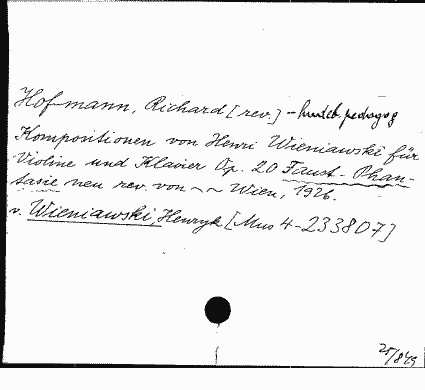 Hofmann, Richard [rev.] - hudeb. pedagog
Kompositionen von Henri Wieniawski für
Violine und Klavier Op. 20 Faust-Phan-
tasie neu rev. von ~~ Wien, 1926.
v. Wieniawski, Henryk [Mus 4-233807]
25/849